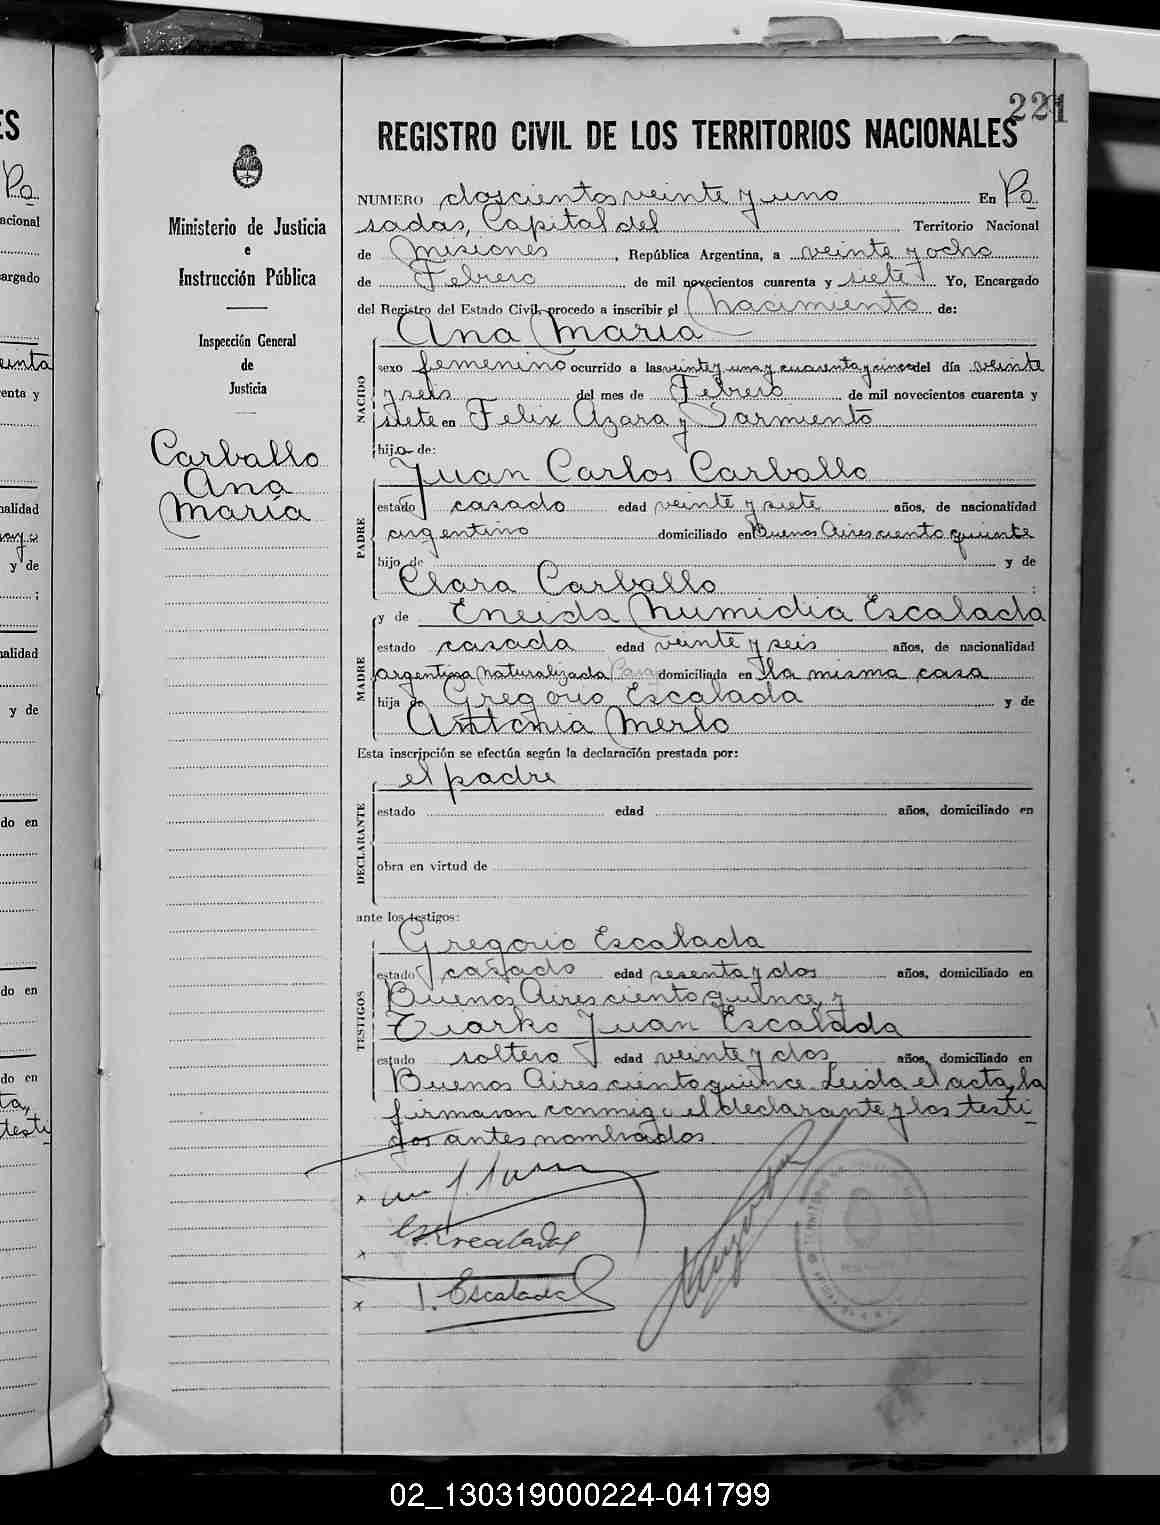 221
REGISTRO CIVIL DE LOS TERRITORIOS NACIONALES
Ministerio de Justicia
e
Instrucción Pública
Inspección General
de
Justicia
Carballo
Ana
María
NUMERO doscientos veinte y uno En Po
sadas, Capital del Territorio Nacional
de Misiones, República Argentina, a veinte y ocho
de Febrero de mil novecientos cuarenta y siete Yo, Encargado
del Registro del Estado Civil, procedo a inscribir el Nacimiento de:
Ana María
NACIDO
sexo femenino ocurrido a las veinte y una y cuarenta y cinco del día veinte
y seis del mes de Febrero de mil novecientos cuarenta y
siete en Felix Azara y Sarmiento
hija de:
Juan Carlos Carballo
PADRE
estado casado edad veinte y siete años, de nacionalidad
argentino domiciliado en Buenos Aires ciento quinte
hijo de y de
Clara Carballo ;
y de Eneida Numidia Escalada
MADRE
estado casada edad veinte y seis años, de nacionalidad
argentina naturalizada domiciliada en la misma casa
hija de Gregorio Escalada y de
Antonia Merlo
Esta inscripción se efectúa según la declaración prestada por:
el padre
DECLARANTE
estado edad años, domiciliado en
obra en virtud de
ante los testigos:
Gregorio Escalada
TESTIGOS
estado casado edad sesenta y dos años, domiciliado en
Buenos Aires ciento quince y
Juan Escalada
estado soltero edad veinte y dos años, domiciliado en
Buenos Aires ciento quince. Leida el acta, la
firmaron conmigo el declarante y los testi
gos antes nombrados
Escalada
J. Escalada
02_130319000224-041799